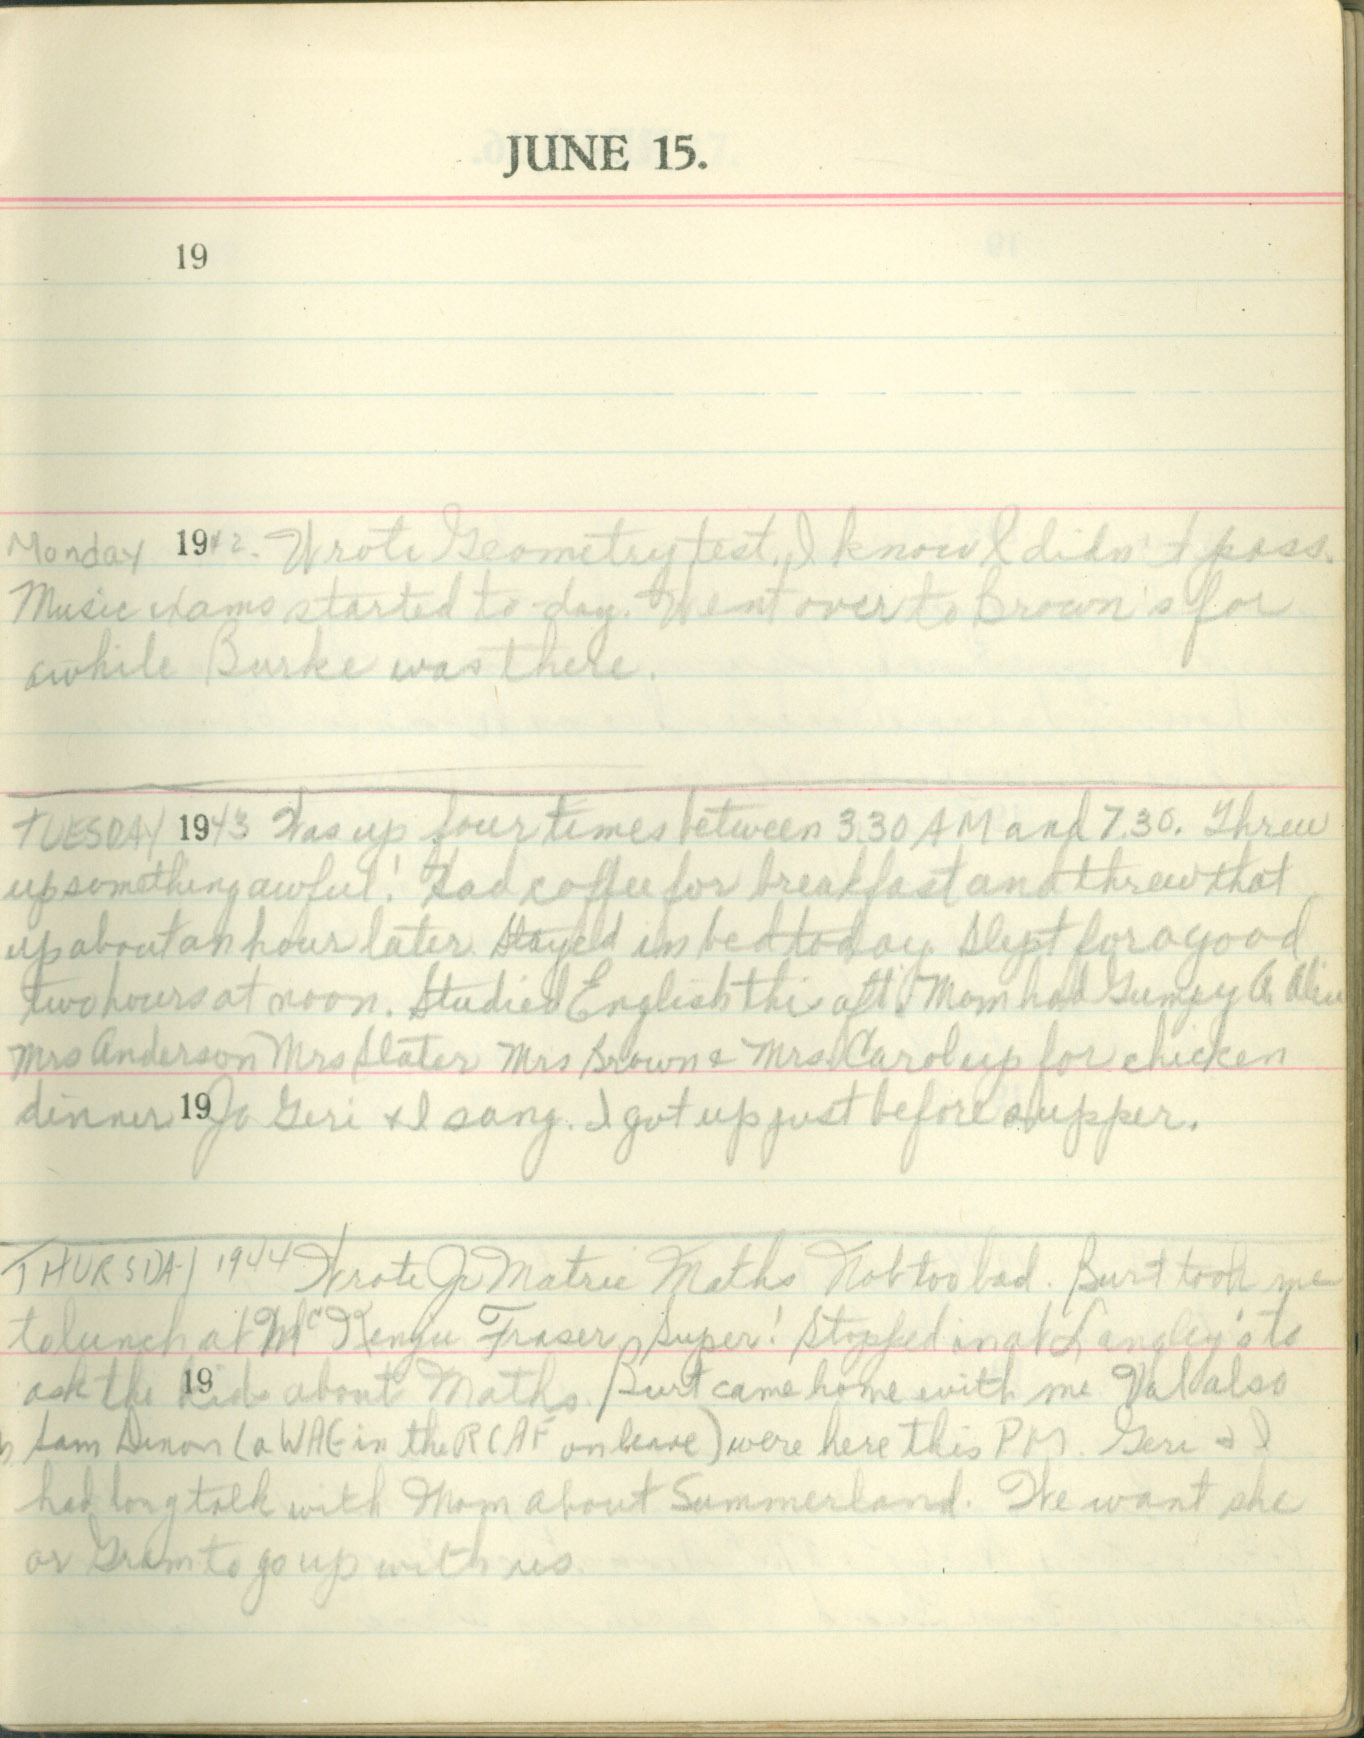 JUNE 15.
19
Monday 1942. Wrote Geometry test, I know I didn't pass.
Music exams started to-day. Went over to Brown's for
awhile Burke was there.
TUESDAY 1943 Was up four times between 3.30 AM and 7.30. Threw
up something awful! Had coffee for breakfast and threw that
up about an hour later. Stayed in bed today. Slept for a good
two hours at noon. Studied English this aft. Mom had Gumpy A.
Mrs Anderson Mrs Slater Mrs Brown & Mrs. Carol up for chicken
dinner 19 Jo Geri & I sang. I got up just before supper.
THURSDAY 1944 Wrote Jr Matric Maths Not too bad. Burt took me
to lunch at McKenzie Fraser. Super! Stopped in at Langley's to
ask the 19 kids about Maths. Burt came home with me Val also
Sam (a WAG in the RCAF on leave) were here this PM. Geri & I
had long talk with Mom about Summerland. We want she
or Gram to go up with us.